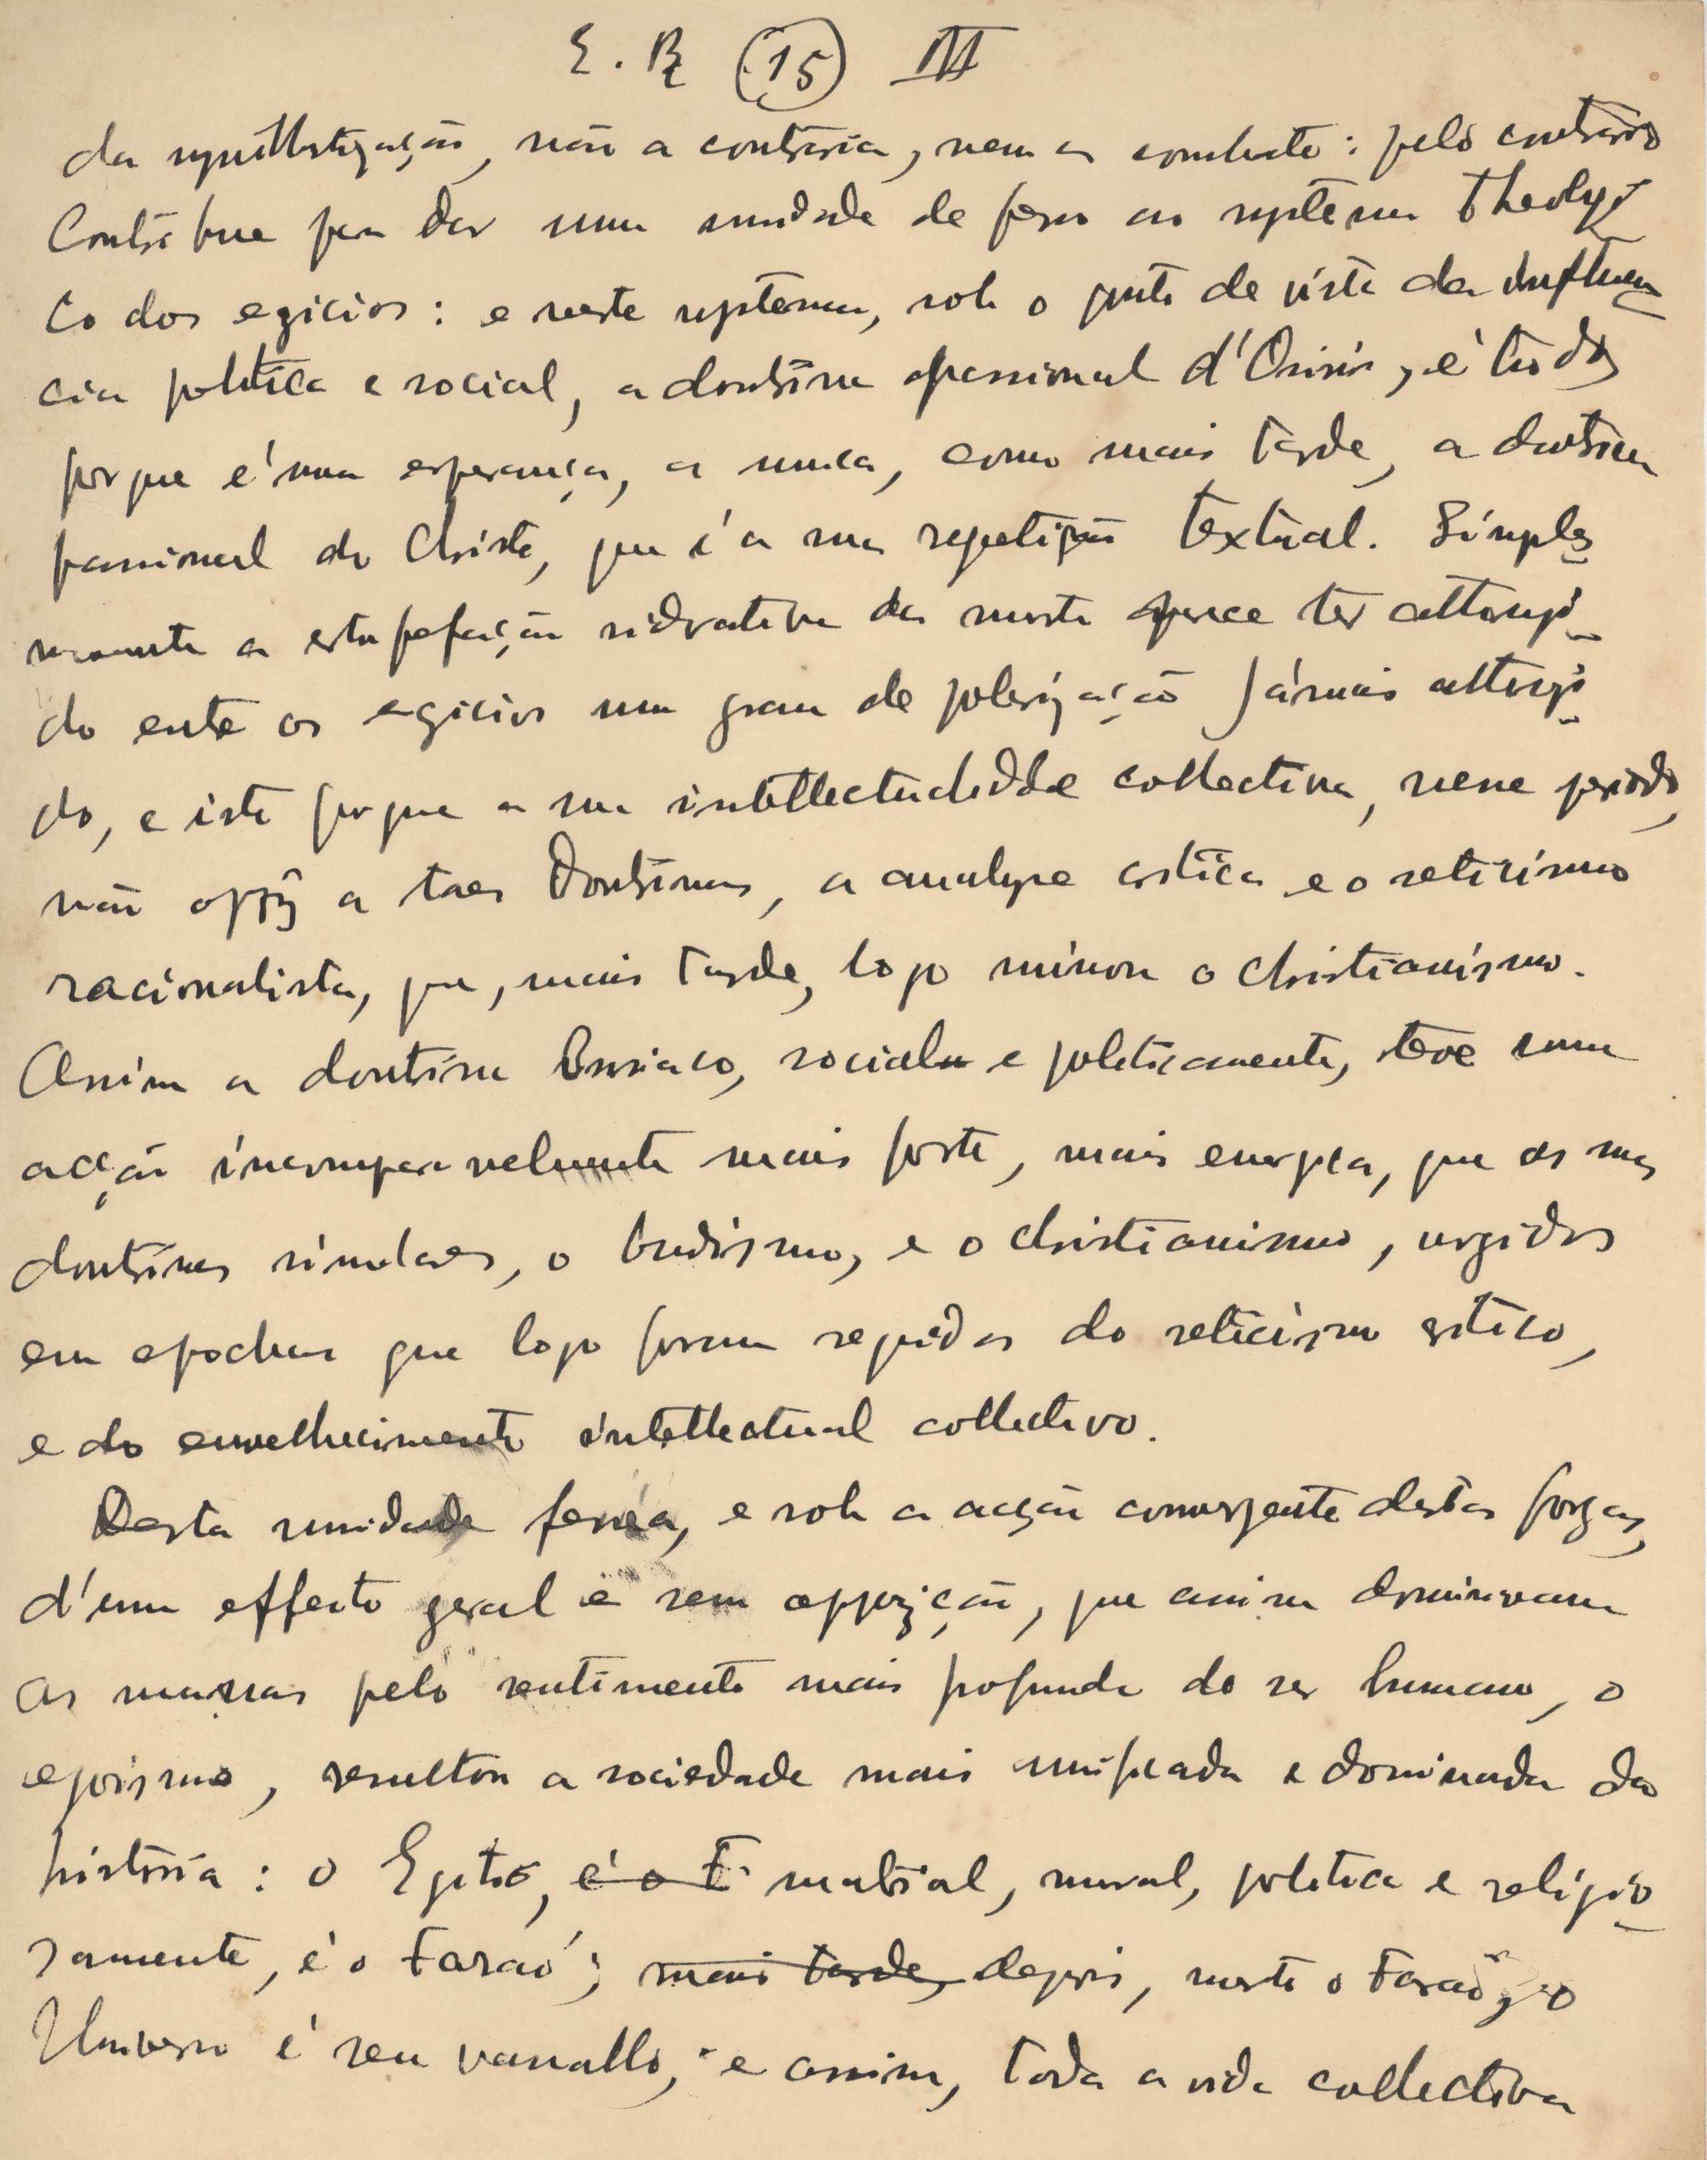 E. R (15) III
da synthetização, não a contraria, nem a combate: pelo contrario
Contribue para dar uma unidade de ferro ao systema theologi
co dos egicios: e neste systema, sob o ponto de vista da influen
cia politica e social, a doutrina passional d'Osiris, é tudo
porque é uma esperança, a unica, como mais tarde, a doutrina
passional do Christo, que é a sua repetição textual. Simples
mente a estupefação sidrativa da morte parece ter attingi
do entre os egicios um grau de polarização jámais attingi
do, e isto porque a sua intellectualidade collectiva, nesse periodo,
não oppõz a taes doutrinas, a analyse critica e o scticismo
racionalista, que, mais tarde, logo minou o christianismo.
Assim a doutrina Osiriaca, social e politicamente, teve uma
acção incomparavelmente mais forte, mais energica, que as suas
doutrinas similares, o budismo, e o christianismo, surgidas
em epochas que logo foram seguidas do scticismo critico,
e do envelhecimento intellectual collectivo.
Desta unidade ferrea, e sob a acção convergente destas forças,
d'um effeito geral e sem oppozição, que assim dominavam
as massas pelo sentimento mais profundo do ser humano, o
egoismo, resultou a sociedade mais unificada e dominada da
historia: o Egito, é o F material, moral, politica e religio
samente, é o Faraó; mais tarde, depois, morto o Faraó, o
Universo é seu vassallo; e assim, toda a vida collectiva